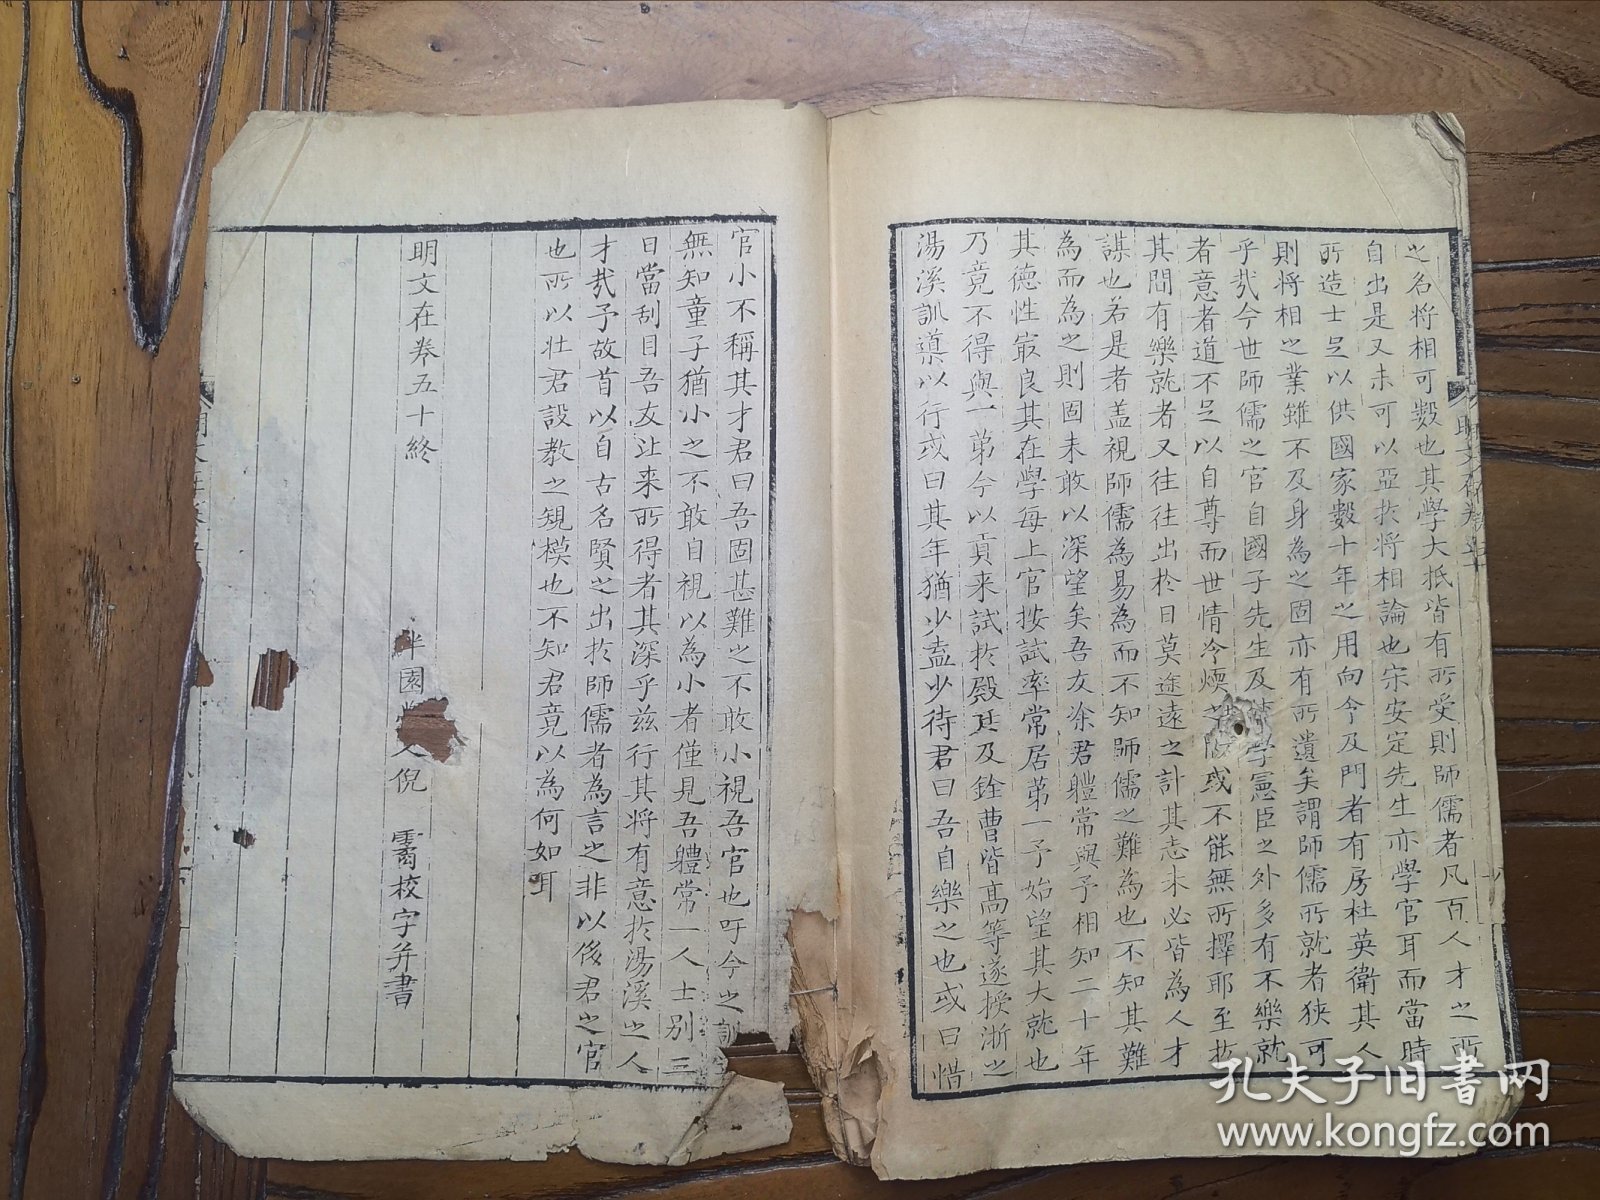 之名將相可數也其學大抵皆有所受則師儒者凡百人才之所
自出是又未可以亞於將相論也宋安定先生亦學官耳而當時
所造士足以供國家數十年之用向今及門者有房杜英衛其人
則將相之業雖不及身為之固亦有所遺矣謂師儒所就者狹可
乎哉今世師儒之官自國子先生及學憲臣之外多有不樂就
者意者道不足以自尊而世情冷煖或不能無所擇耶至於
其間有樂就者又往往出於日莫途遠之計其志未必皆為人才
謀也若是者盖視師儒為易為而不知師儒之難為也不知其難
為而為之則固未敢以深望矣吾友凃君軆常與予相知二十年
其德性㝡良其在學每上官按試率常居第一予始望其大就也
乃竟不得與一第今以貢来試於殿廷及銓曹皆高等遂授浙之
湯溪訓導以行或曰其年猶少盍少待君曰吾自樂之也或曰惜
官小不稱其才君曰吾固甚難之不敢小視吾官也吁今之訓
無知童子猶小之不敢自視以為小者僅見吾軆常一人士别三
日當刮目吾友近来所得者其深乎兹行其將有意於湯溪之人
才哉予故首以自古名賢之出於師儒者為言之非以後君之官
也所以壮君設教之規模也不知君竟以為何如耳
明文在卷五十終
半園 人倪 霱校字并書
明文在卷五十
孔夫子旧书网
www.kongfz.com